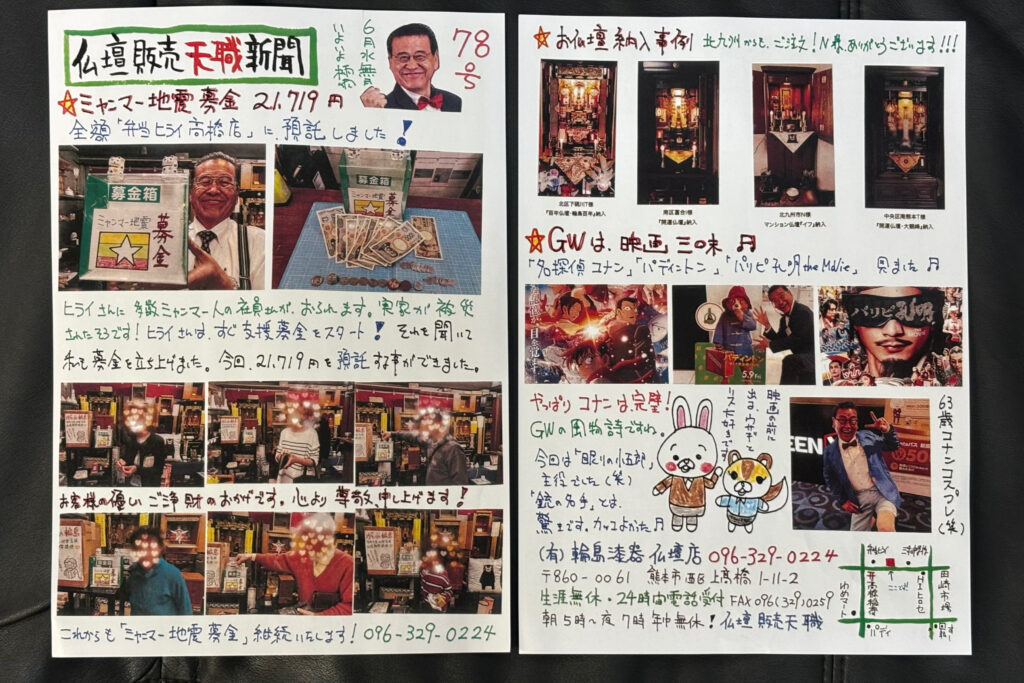 仏壇販売天職新聞
6月水無月
78号
ミャンマー地震募金 21,719円
全額「弁当ヒライ高橋店」に、預託しました!
募金箱
ミャンマー地震
募金
ヒライさんに多数ミャンマー人の社員さんが、おられます。実家が被災
されたそうです!ヒライさんは、すぐ支援募金をスタート!それを聞いて
私も募金を立ち上げました。今回、21,719円を預託する事ができました。
お客様の優しいご浄財のおかげです。心より尊敬申し上げます!
これからも「ミャンマー地震募金」継続いたします!096-329-0224
お仏壇納入事例 北九州からも、ご注文!N様、ありがとうございます!!!
北区下硯川T様
『百年仏壇・輪島百年』納入
南区富合I様
『開運仏壇』納入
北九州市N様
マンション仏壇『イフ』納入
中央区南熊本T様
『開運仏壇・大観峰』納入
GWは、映画三昧♬
「名探偵コナン」「パディントン」「パリピ孔明 the Movie」見ました♬
パディントン
5.9
パリピ孔明
やっぱりコナンは、完璧!
GWの風物詩ですね。
今回は「眠りの小五郎」
主役でした(笑)
「銃の名手」とは、
驚きです。カッコよかった♬
映画の前に
出る、ウサギと
リス大好きです
63歳コナンコスプレ(笑)
(有)輪島漆器仏壇店 096-329-0224
〒860-0061 熊本市西区上高橋1-11-2
生涯無休・24時間電話受付 FAX096(329)0259
朝5時〜夜7時年中無休!仏壇販売天職
ここです!
田崎市場
ゆめマート
高橋稲荷